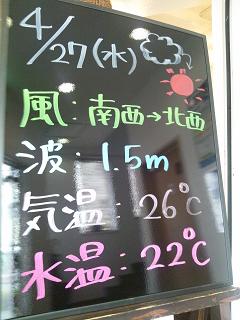 4/27(水)
風:南西→北西
波:1.5m
気温:26℃
水温:22℃